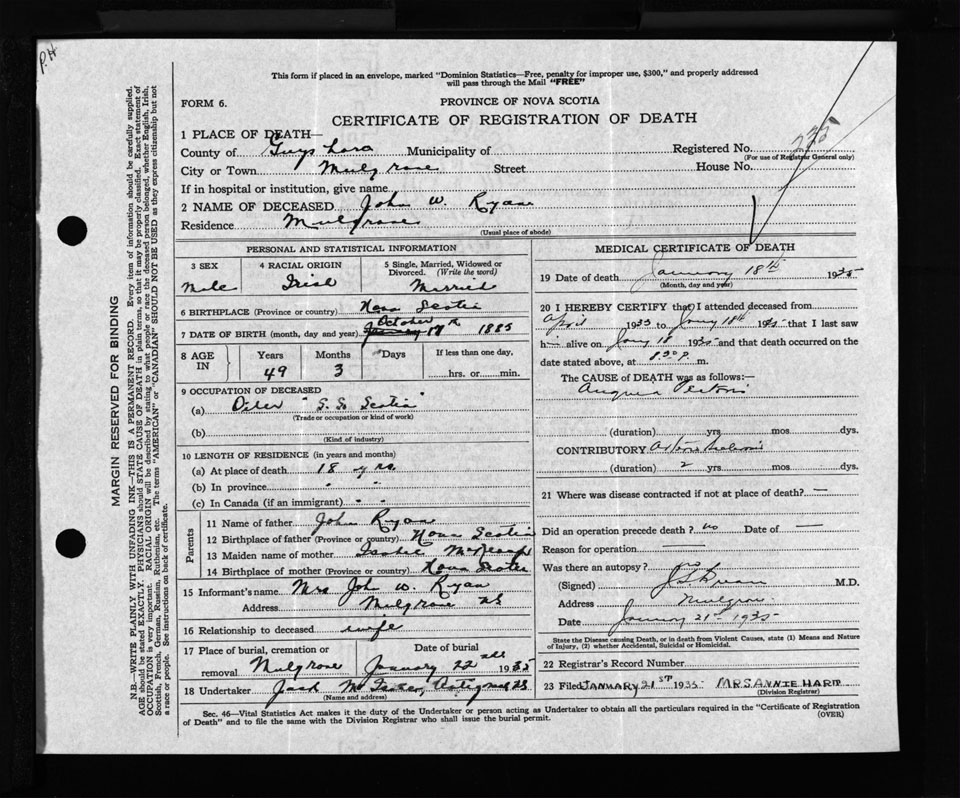 P.H
This form if placed in an envelope, marked "Dominion Statistics—Free, penalty for improper use, $300," and properly addressed
will pass through the Mail "FREE"
FORM 6.
PROVINCE OF NOVA SCOTIA
CERTIFICATE OF REGISTRATION OF DEATH
1 PLACE OF DEATH—
County of Municipality of Registered No. 235
(For use of Registrar General only)
City or Town Mulgrave Street House No.
If in hospital or institution, give name
2 NAME OF DECEASED John W. Ryan
Residence Mulgrave
(Usual place of abode)
PERSONAL AND STATISTICAL INFORMATION
3 SEX 4 RACIAL ORIGIN 5 Single, Married, Widowed or Divorced. (Write the word)
Male Irish Married
6 BIRTHPLACE (Province or country) Nova Scotia
7 DATE OF BIRTH (month, day and year) October 17th 1885
8 AGE IN Years Months Days If less than one day,
49 3 hrs. or min.
9 OCCUPATION OF DECEASED
(a) Oiler "S.S. Scotia"
(Trade or occupation or kind of work)
(b)
(Kind of industry)
10 LENGTH OF RESIDENCE (in years and months)
(a) At place of death 18 yrs.
(b) In province " "
(c) In Canada (if an immigrant) " "
Parents
11 Name of father John Ryan
12 Birthplace of father (Province or country) Nova Scotia
13 Maiden name of mother
14 Birthplace of mother (Province or country) Nova Scotia
15 Informant's name Mrs John W. Ryan
Address Mulgrave NS
16 Relationship to deceased wife
17 Place of burial, cremation or removal Mulgrave Date of burial January 22nd 1935
18 Undertaker Jack
(Name and address)
MEDICAL CERTIFICATE OF DEATH
19 Date of death January 18th 1935
(Month, day and year)
20 I HEREBY CERTIFY that I attended deceased from
April 1933 to Jany 18th 1935 that I last saw
h alive on Jany 18 1935 and that death occurred on the
date stated above, at 8.30 P. m.
The CAUSE of DEATH was as follows:—
Angina Pectoris
(duration) yrs. mos. dys.
CONTRIBUTORY
(duration) 2 yrs. mos. dys.
21 Where was disease contracted if not at place of death? —
Did an operation precede death? no Date of —
Reason for operation
Was there an autopsy? no
(Signed) M.D.
Address Mulgrave
Date January 21st 1935
State the Disease causing Death, or in death from Violent Causes, state (1) Means and Nature
of Injury, (2) whether Accidental, Suicidal or Homicidal.
22 Registrar's Record Number
23 Filed JANUARY 21ST 1935 MRS ANNIE HART
(Division Registrar)
Sec. 46—Vital Statistics Act makes it the duty of the Undertaker or person acting as Undertaker to obtain all the particulars required in the "Certificate of Registration
of Death" and to file the same with the Division Registrar who shall issue the burial permit. (OVER)
MARGIN RESERVED FOR BINDING
N.B.—WRITE PLAINLY WITH UNFADING INK—THIS IS A PERMANENT RECORD. Every item of information should be carefully supplied.
AGE should be stated EXACTLY. PHYSICIANS should STATE CAUSE OF DEATH in plain terms, so that it may be properly classified. Exact statement of
OCCUPATION is very important. RACIAL ORIGIN will be described by stating to what people or race the deceased person belonged, whether English, Irish,
Scottish, French, German, Russian, Ruthenian, etc. The terms "AMERICAN" or "CANADIAN" SHOULD NOT BE USED as they express citizenship but not
a race or people. See instructions on back of certificate.